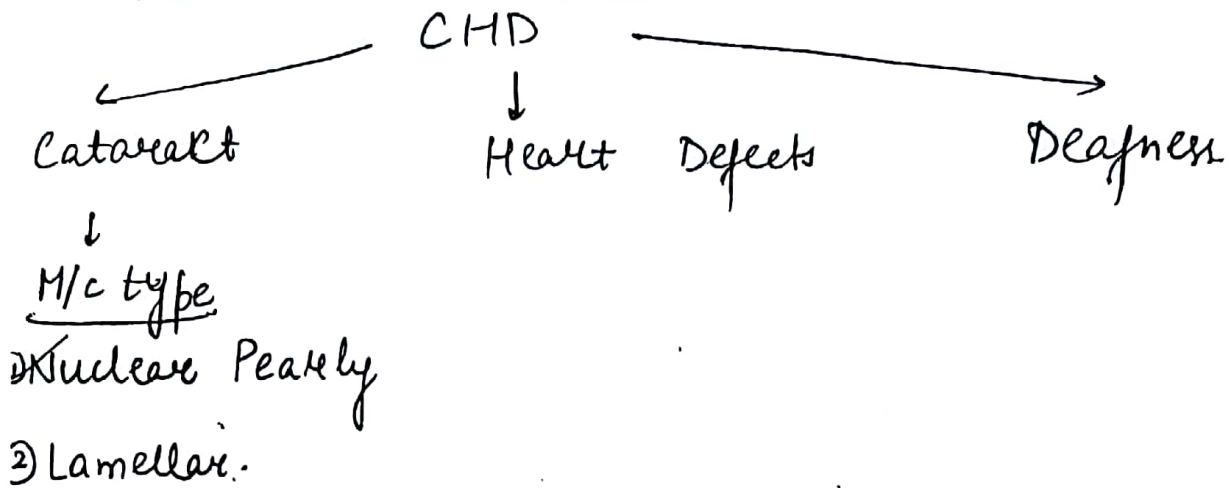 CHD
Cataract Heart Defects Deafness
M/c type
1) Nuclear Pearly
2) Lamellar.